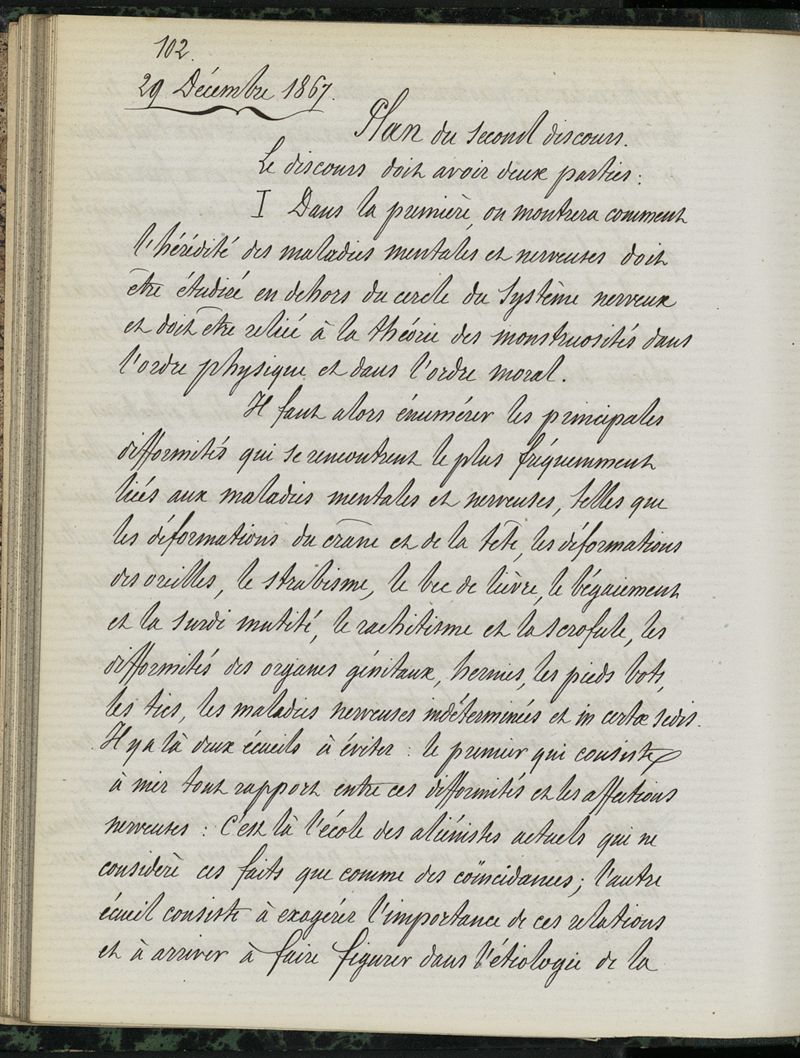 102.
29 Décembre 1867.
Plan du second discours.
Le discours doit avoir deux parties :
I Dans la première, on montrera comment
l'hérédité des maladies mentales et nerveuses doit
être étudiée en dehors du cercle du Système nerveux
et doit être reliée à la théorie des monstruosités dans
l'ordre physique et dans l'ordre moral.
Il faut alors énumérer les principales
difformités qui se rencontrent le plus fréquemment
liées aux maladies mentales et nerveuses, telles que
les déformations du crâne et de la tête, les déformations
des oreilles, le strabisme, le bec de lièvre, le bégaiement
et la surdi mutité, le rachitisme et la scrofule, les
difformités des organes génitaux, hernies, les pieds bots,
les tics, les maladies nerveuses indéterminées et incertæ sedis.
Il y a là deux écueils à éviter : le premier qui consiste
à nier tout rapport entre ces difformités et les affections
nerveuses : c'est là l'école des aliénistes actuels qui ne
considère ces faits que comme des coïncidances ; l'autre
écueil consiste à exagérer l'importance de ces relations
et à arriver à faire figurer dans l'étiologie de la